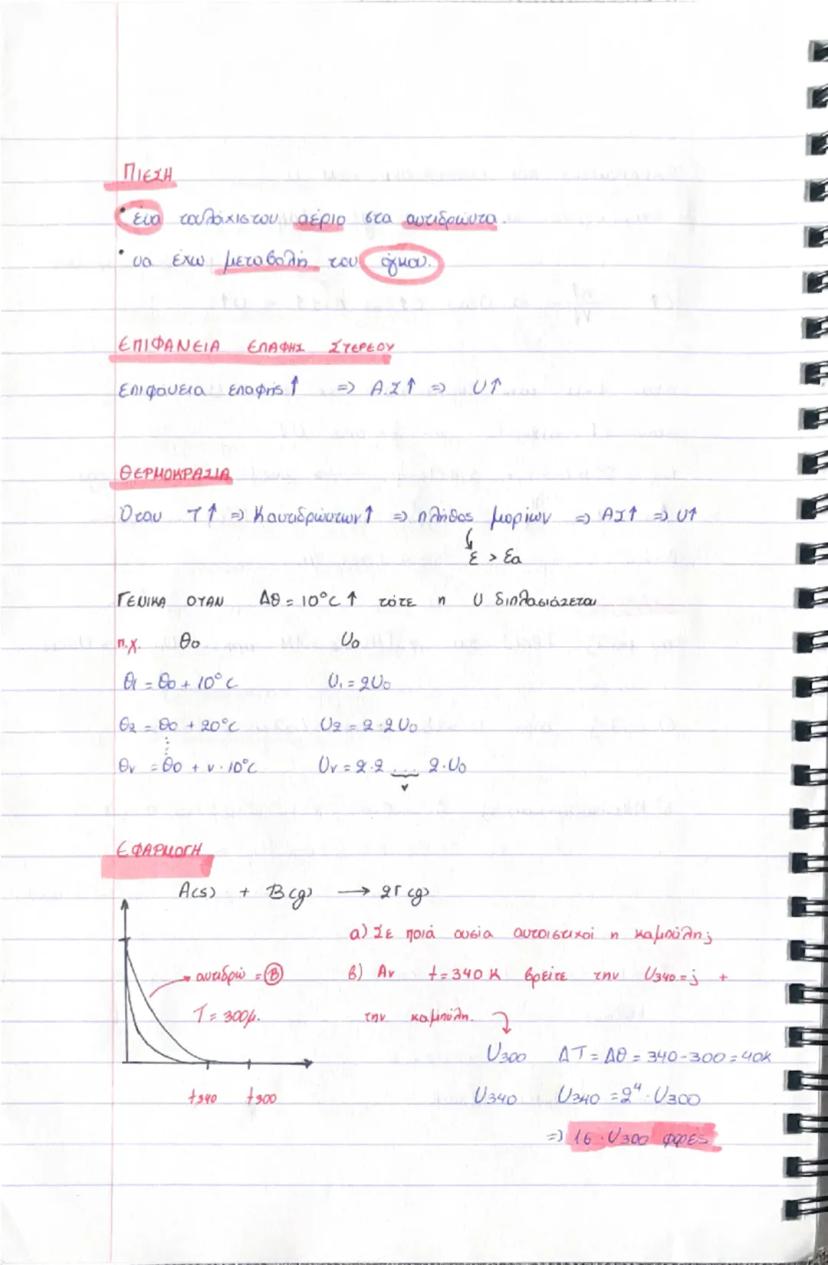 ΠΙΕΣΗ
• ένα τουλάχιστον αέριο στα αντιδρώντα.
• να έχω μεταβολή του όγκου.
ΕΠΙΦΑΝΕΙΑ ΕΠΑΦΗΣ ΣΤΕΡΕΟΥ
Επιφάνεια επαφής ↑ ⇒ Α.Σ ↑ ⇒ U ↑
ΘΕΡΜΟΚΡΑΣΙΑ
Όταν T ↑ ⇒ Kαντιδρώντων ↑ ⇒ πλήθος μορίων ⇒ ΑΣ ↑ ⇒ U ↑
ε > εa
ΓΕΝΙΚΑ ΟΤΑΝ Δθ = 10°C ↑ τότε η U διπλασιάζεται
π.χ. θ0 U0
θ1 = θ0 + 10°C U1 = 2U0
θ2 = θ0 + 20°C U2 = 2·2U0
θν = θ0 + ν·10°C Uν = 2·2 ... 2·U0
ν
ΕΦΑΡΜΟΓΗ
A(s) + B(g) → 2Γ(g)
α) Σε ποιά ουσία αντοιστιχοί η καμπύλη;
αντιδρώ = Β
β) Αν t = 340 K βρείτε την U340 = ; +
T = 300μ.
την καμπύλη.
U300 ΔT = Δθ = 340 - 300 = 40K
t340 t300
U340 U340 = 2⁴ · U300
⇒ 16 · U300 φορές